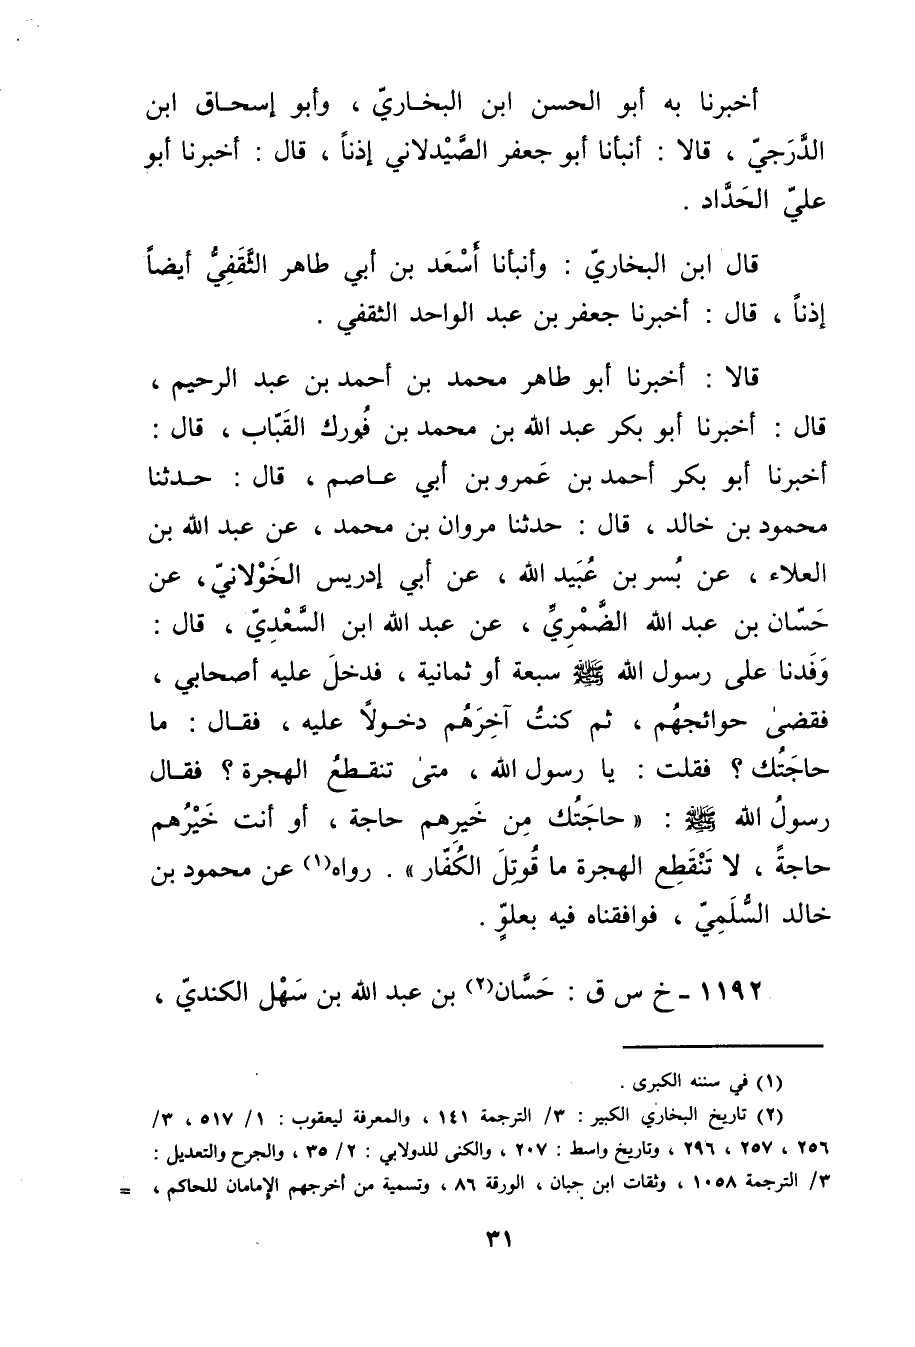 أخبرنا به أبو الحسن ابن البخـاريّ ، وأبو إسحـاق ابن
الدَّرَجيّ ، قالا : أنبأنا أبو جعفر الصَّيْدلاني إذناً ، قال : أخبرنا أبو
عليّ الحَدَّاد .
قال ابن البخاريّ : وأنبأنا أَسْعَد بن أبي طاهر الثَّقَفِيُّ أيضاً
إذناً ، قال : أخبرنا جعفر بن عبد الواحد الثقفي .
قالا : أخبرنا أبو طاهر محمد بن أحمد بن عبد الرحيم ،
قال : أخبرنا أبو بكر عبد الله بن محمد بن فُورك القَبّاب ، قال :
أخبرنا أبو بكر أحمد بن عَمرو بن أبي عـاصم ، قال : حـدثنا
محمود بن خالد ، قال : حدثنا مروان بن محمد ، عن عبد الله بن
العلاء ، عن بُسر بن عُبَيد الله ، عن أبي إدريس الخَوْلانيّ، عن
حَسّان بن عبد الله الضَّمْريِّ ، عن عبد الله ابن السَّعْدِيّ ، قال :
وَفَدنا على رسول الله ﷺ سبعة أو ثمانية ، فدخلَ عليه أصحابي ،
فقضىٰ حوائجهُم ، ثم كنتُ آخِرَهُم دخـولاً عليه ، فقـال : ما
حاجَتُك ؟ فقلت : يا رسول الله ، متىٰ تنقـطعُ الهجرة ؟ فقـال
رسولُ الله ﷺ : « حاجَتُك مِن خَيرِهم حاجة ، أو أنت خَيْرُهم
حاجةً ، لا تَنْقَطِع الهجرة ما قُوتِلَ الكُفّار » . رواه(١) عن محمود بن
خالد السُّلَمِيّ ، فوافقناه فيه بعلوٍّ .
١١٩٢ - خ س ق : حَسَّان(٢) بن عبد الله بن سَهْل الكنديّ ،
(١) في سننه الكبرى .
(٢) تاريخ البخاري الكبير : ٣/ الترجمة ١٤١ ، والمعرفة ليعقوب : ١/ ٥١٧ ، ٣/
٢٥٦ ، ٢٥٧ ، ٢٩٦ ، وتاريخ واسط : ٢٠٧ ، والكنى للدولابي : ٢/ ٣٥ ، والجرح والتعديل :
٣/ الترجمة ١٠٥٨ ، وثقات ابن حبان ، الورقة ٨٦ ، وتسمية من أخرجهم الإمامان للحاكم ، =
٣١